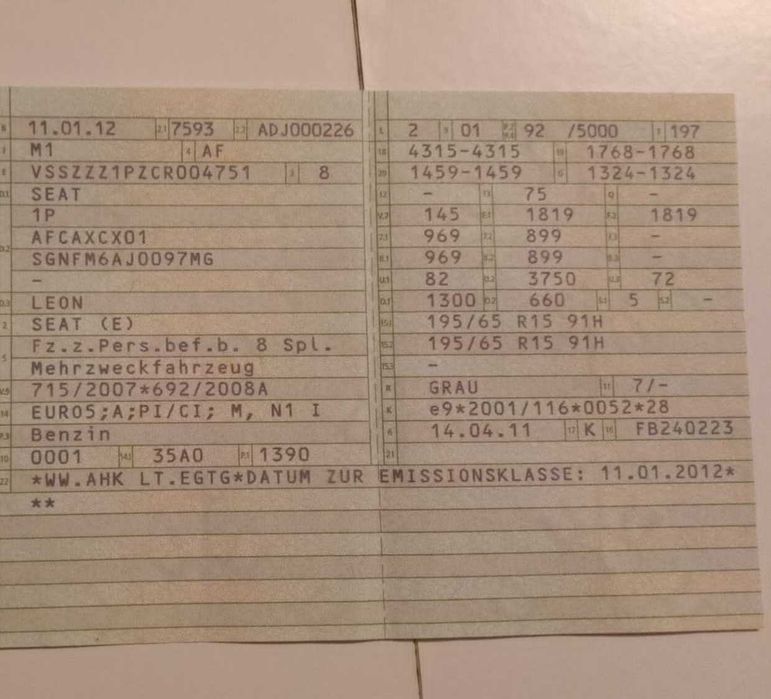 B 11.01.12 2.1 7593 2.2 ADJ000226
J M1 4 AF
E VSSZZZ1PZCR004751 3 8
D.1 SEAT
1P
D.2 AFCAXCX01
SGNFM6AJ0097MG
-
D.3 LEON
2 SEAT (E)
5 Fz.z.Pers.bef.b. 8 Spl.
Mehrzweckfahrzeug
V.9 715/2007*692/2008A
14 EURO5;A;PI/CI; M, N1 I
P.3 Benzin
10 0001 14.1 35A0 P.1 1390
22 *WW.AHK LT.EGTG*DATUM ZUR EMISSIONSKLASSE: 11.01.2012*
**
L 2 9 01 P.2 P.4 92 /5000 T 197
18 4315-4315 19 1768-1768
20 1459-1459 G 1324-1324
12 - 13 75 Q -
V.7 145 F.1 1819 F.2 1819
7.1 969 7.2 899 7.3 -
8.1 969 8.2 899 8.3 -
U.1 82 U.2 3750 U.3 72
O.1 1300 O.2 660 S.1 5 S.2 -
15.1 195/65 R15 91H
15.2 195/65 R15 91H
15.3 -
R GRAU 11 7/-
K e9*2001/116*0052*28
6 14.04.11 17 K 16 FB240223
21